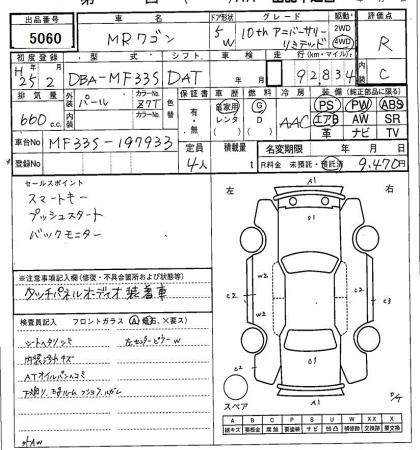 出品番号 車名 ドア形状 グレード 駆動 評価点
5060 MRワゴン 5 W 10thアニバーサリー リミテッド 2WD 4WD R
初度登録 型式 シフト 車検 走行(km・マイル) C
H 25 2 DBA-MF33S DAT 年 月 92,834
排気量 外装 パール カラーNo. Z7T 色替 車歴 燃料 冷房 装備(純正部品に限る)
660 c.c. 内装 カラーNo. 有・無 自家用 レンタ G D AAC PS PW ABS
エアB AW SR
革 ナビ TV
車台No. MF33S-197933 定員 4人 積載量 t 名変期限 年 月 日
登録No. R料金 未預託・預託済 9,470円
セールスポイント
スマートキー
プッシュスタート
バックモニター
左 右
A1
W2 W2
C2 C2 C2 C3
U1
A1
スペア
※注意事項記入欄(修復・不具合箇所および状態等)
タッチパネルオーディオ装着車
検査員記入 フロントガラス(A、飛石、X要ス)
シートヘタリシミ 左センターピラーW
内装汚キズ
ATオイルパンヘコミ
A B C P S U W XX X
線キズ 要板金 腐蝕 要塗装 サビ 凹凸 補修跡 交換跡 要交換